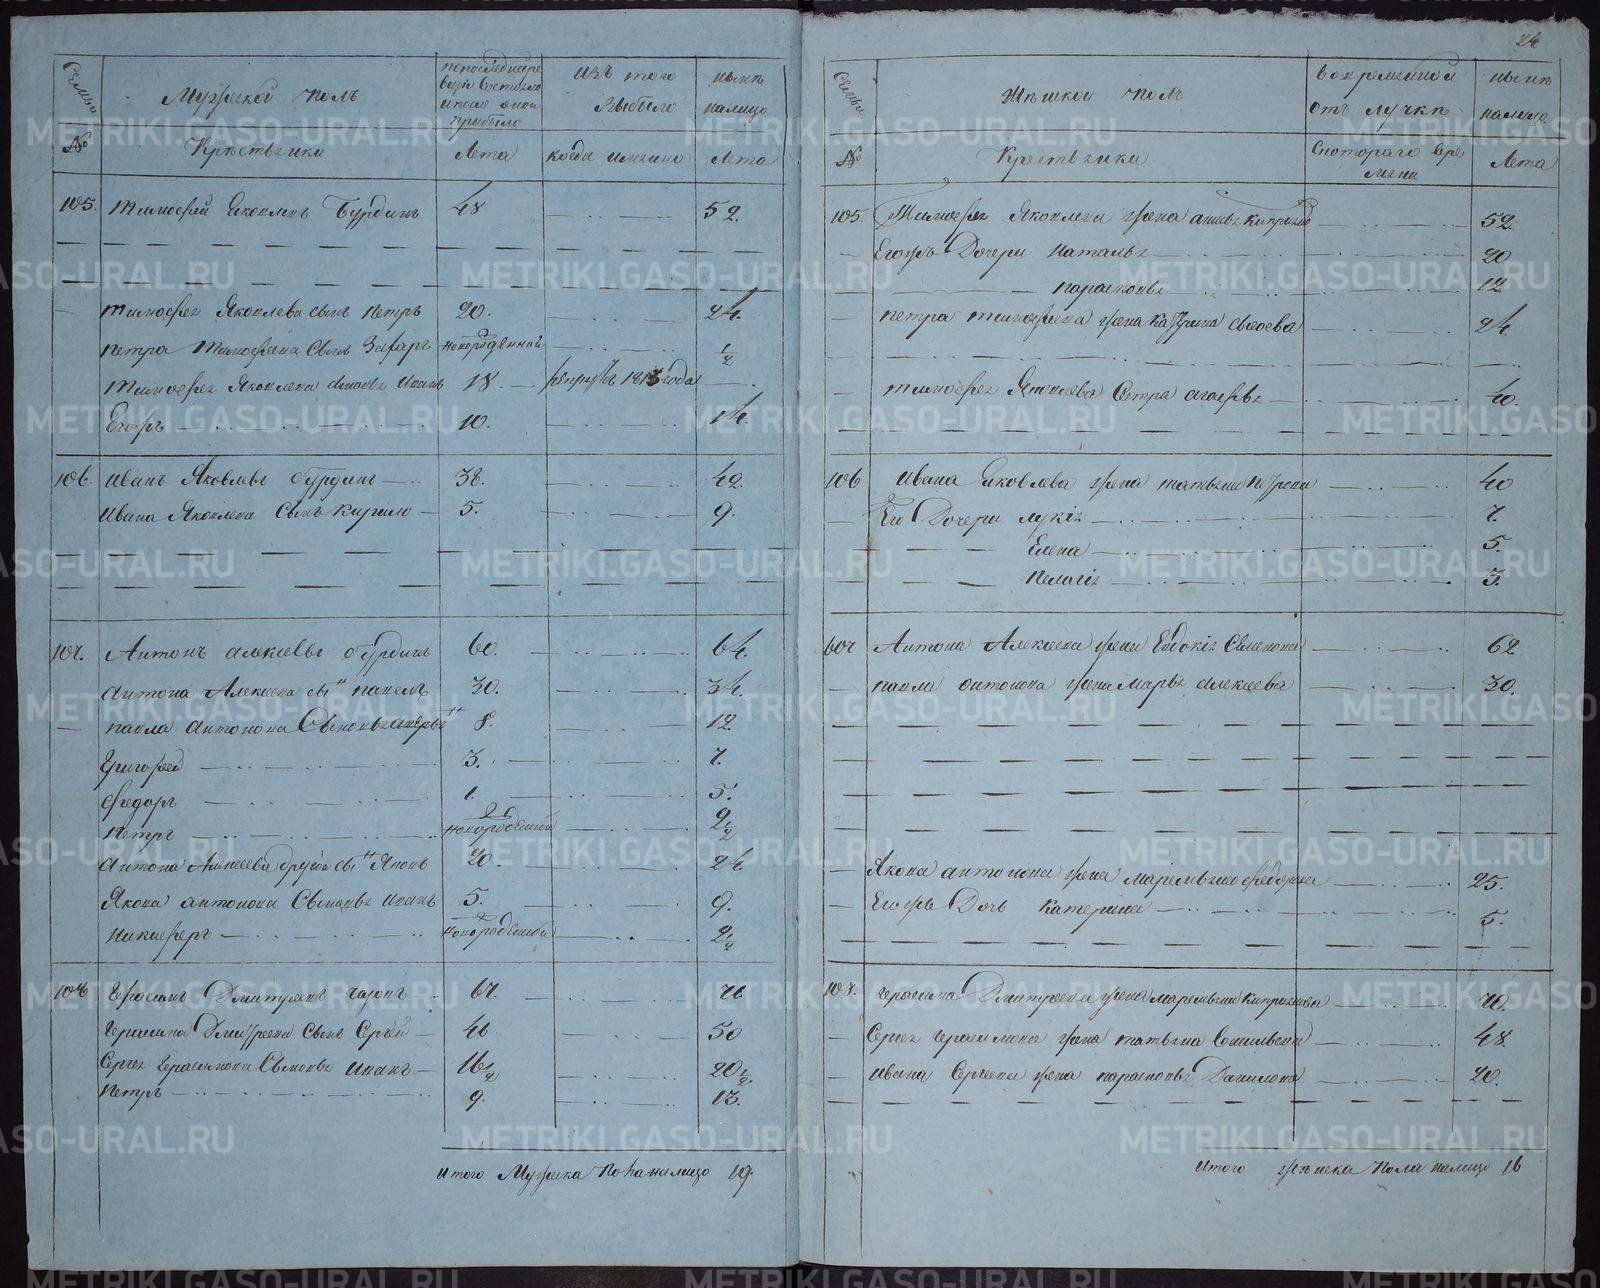 24
Семьи
Мужеской полъ
по последней ре
визiи состояло
и после оной
прибыло
изъ того
выбыло
ныне
налицо
№
Крестьяни
Лета
когда именно
Лета
105. Тимофей Яковлевъ Бурдинъ 48 52.
Тимофея Яковлева сынъ Петръ 20. 24.
Петра Тимофеева сынъ Захаръ новорожденной 1/2
Тимофея Яковлева сыновья Иванъ 18. рекрутъ 1813 года
Егоръ 10. 14.
106. Иванъ Яковлевъ Бурдинъ 38. 42.
Ивана Яковлева сынъ Кирило 5. 9.
107. Антонъ Алексеевъ Бурдинъ 60. 64.
Антона Алексеева сынъ Павелъ 30. 34.
Павла Антонова сыновья 8. 12.
Григорей 3. 7.
Федоръ 1. 5.
Петръ новорожденной 2 1/2
Антона Алексеева другой сынъ Яковъ 20. 24.
Якова Антонова сыновья Иванъ 5. 9.
Никифоръ новорожденной 2 1/4
108 Герасимъ Дмитревъ 67. 71
Герасима Дмитреева сынъ Сергей 46 50
Сергея Герасимова сыновья Иванъ 16 1/2 20 1/2
Петръ 9. 13.
Итого Мужеска пола налицо 19.
Семьи
Женской полъ
во временной
отълучке
ныне
налицо
№
Крестьянки
С котораго вре
мени
Лета
105. Тимофея Яковлева жена 52.
Егожъ дочери Наталья 20
Парасковья 12
Петра Тимофеева жена Катерина Сысоева 24.
Тимофея Яковлева сестра Агафья 40.
106 Ивана Яковлева жена Татьяна Петрова 40
Его дочери Лукия 7.
Елена 5.
Пелагiя 3.
607 Антона Алексеева жена Евдокiя Семенова 62
Павла Антонова жена Марья Алексеева 30.
Якова Антонова жена Маремьяна Федорова 25.
Егожъ дочь Катерина 5.
108. Герасима Дмитреева жена Маремьяна 70.
Сергея Герасимова жена Татьяна Савельева 48.
Ивана Сергеева жена Парасковья Данилова 20.
Итого женска пола налицо 16
METRIKI.GASO-URAL.RU